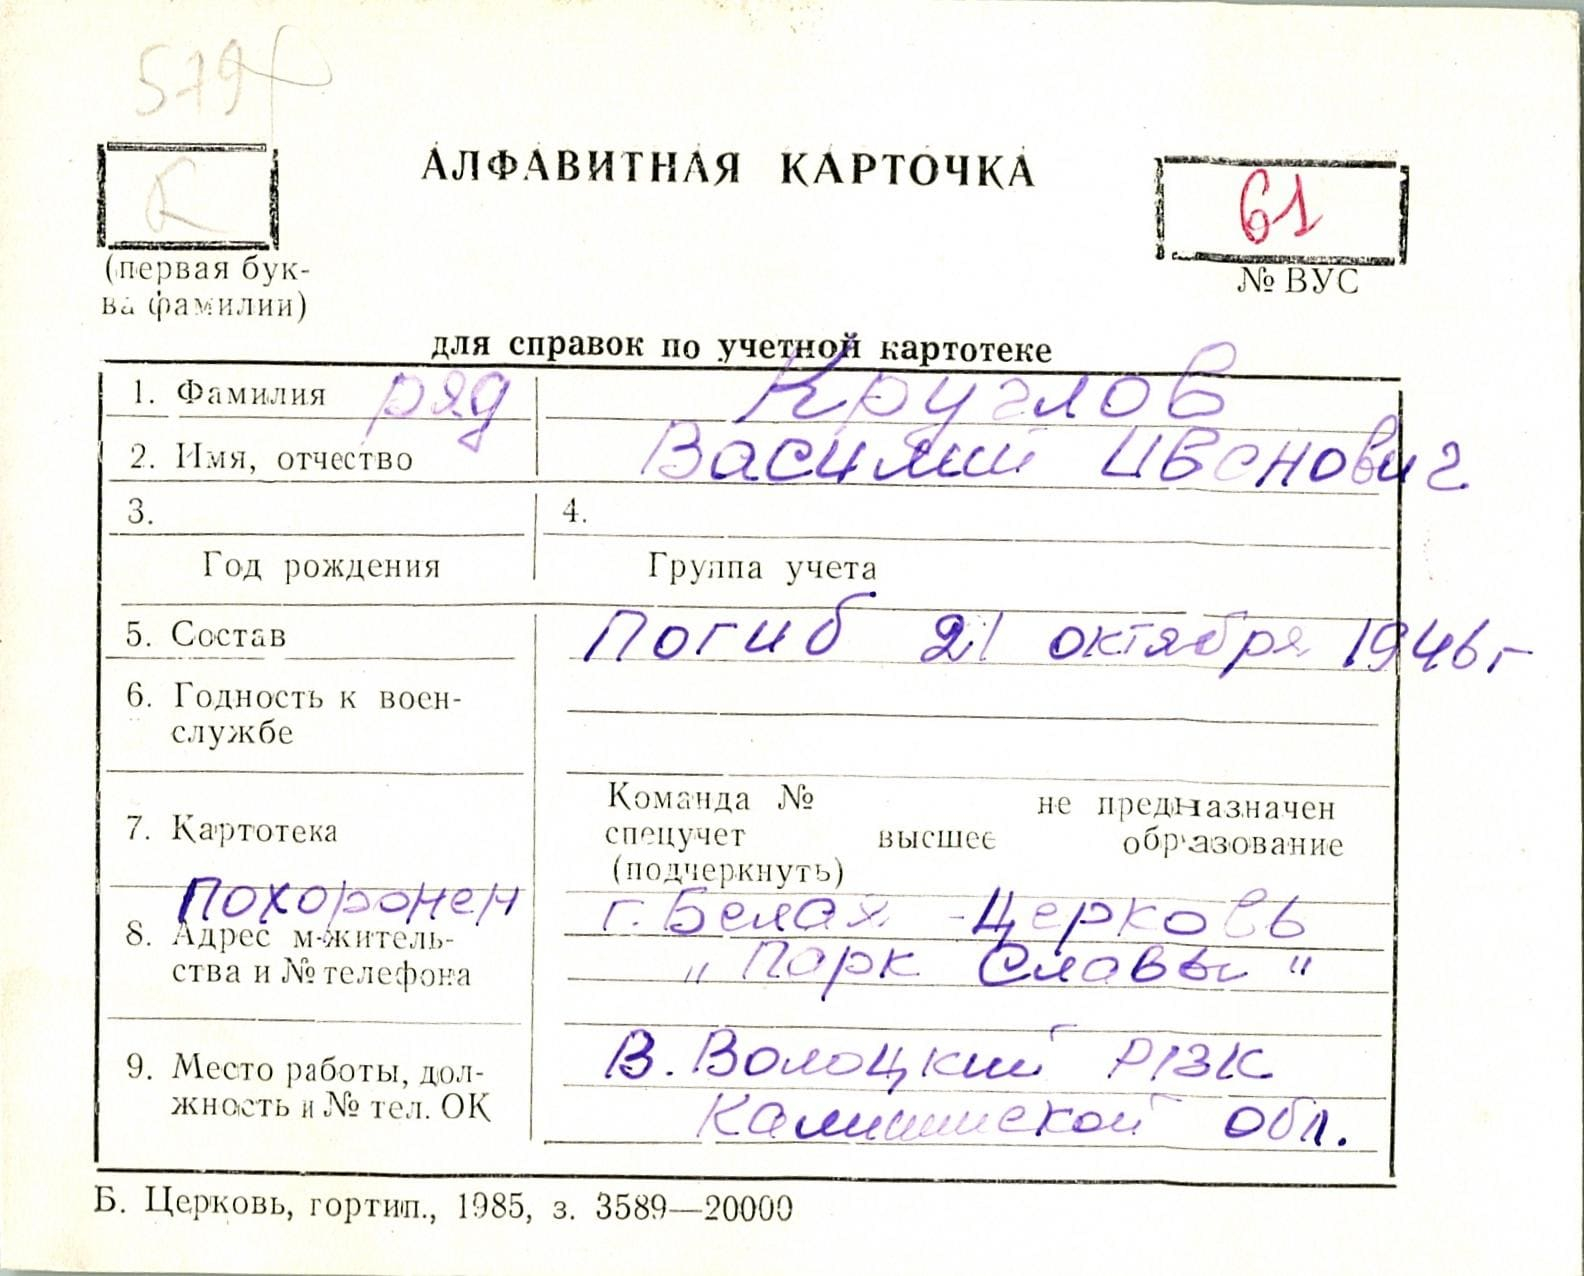 579
К
АЛФАВИТНАЯ КАРТОЧКА
61
(первая бук-
ва фамилии)
№ ВУС
для справок по учетной картотеке
1. Фамилия ряд Круглов
2. Имя, отчество Василий Иванович
3. 4.
Год рождения Группа учета
5. Состав Погиб 21 октября 1946 г
6. Годность к воен-
службе
Команда № не предназначен
7. Картотека спецучет высшее образование
(подчеркнуть)
Похоронен г. Белая - Церковь
8. Адрес м-житель-
ства и № телефона "Парк Славы"
9. Место работы, дол- В. Волоцкий РВК
жность и № тел. ОК Калининской обл.
Б. Церковь, гортип., 1985, з. 3589—20000